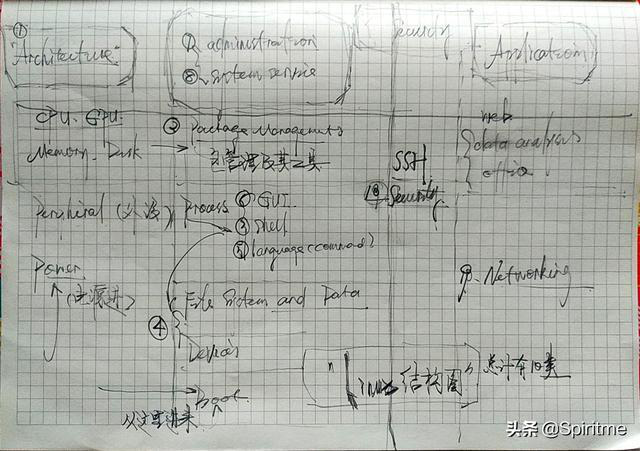 ①
"Architecture"
⑦ administration
⑧ system service
Security
Application
CPU. GPU.
Memory. Disk
② Package Managements
包管理及其工具
web
data analysis
office
SSH
⑩
Security
Peripheral (外设)
Process
⑥ GUI
③ Shell
⑤ language (command)
Power
(电源进)
⑨. Networking
④ File System and Data
Devices
Boot
从这里进来
"Linux 结构图"
总计有10类
头条 @Spiritme